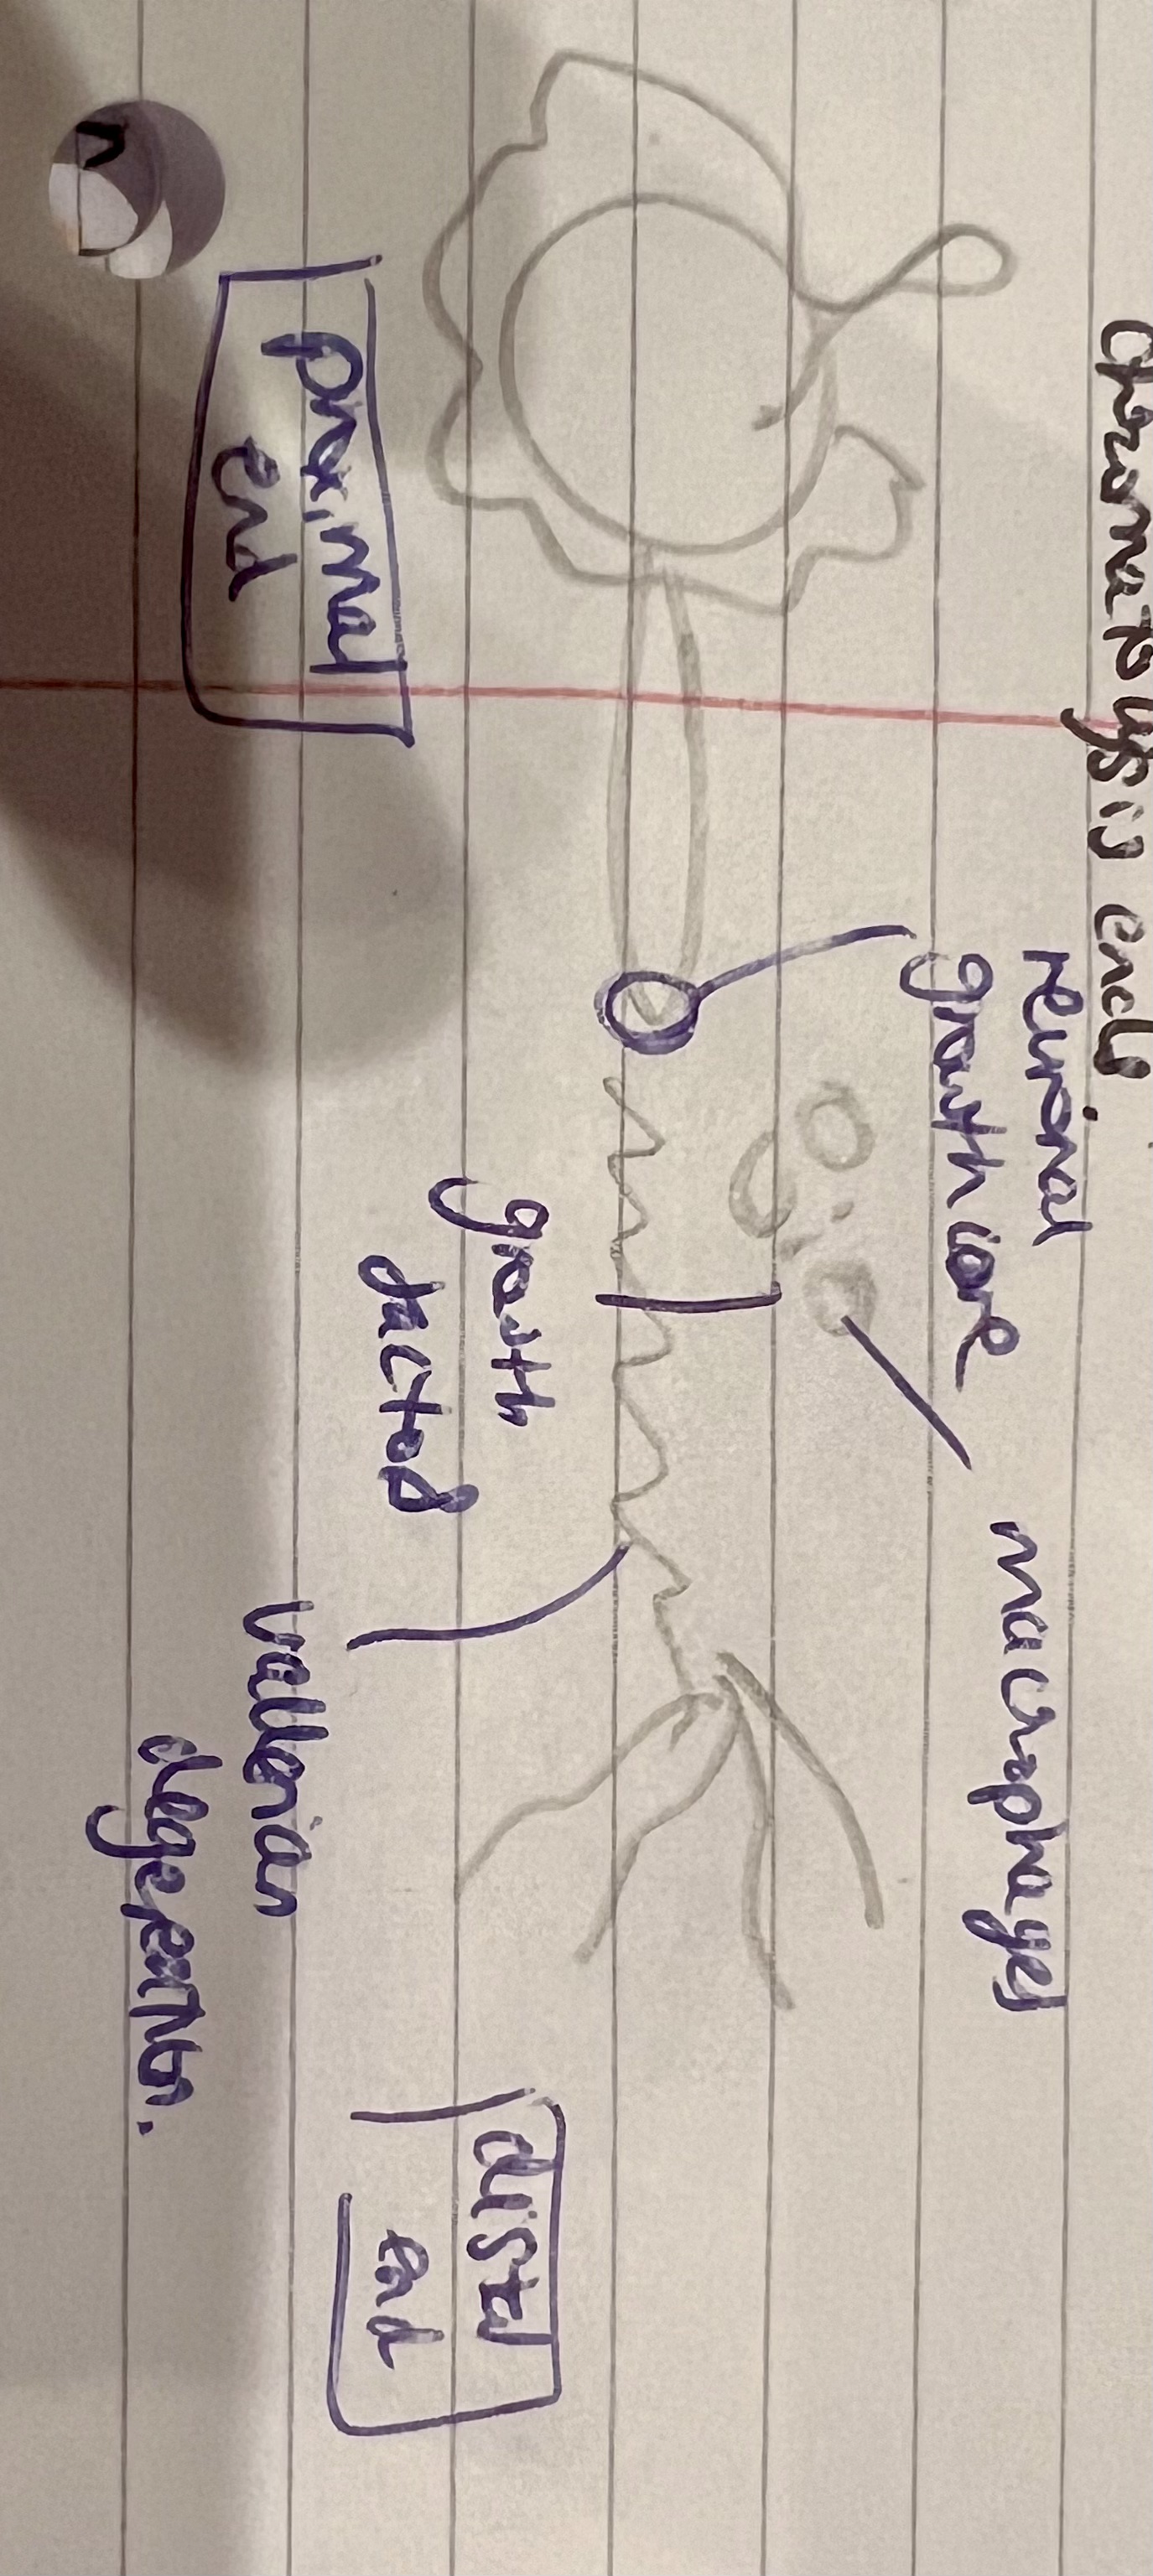 chromatolysis ends
neuronal
growth cone
macrophages
proximal
end
growth
factors
distal
end
wallerian
degeneration.